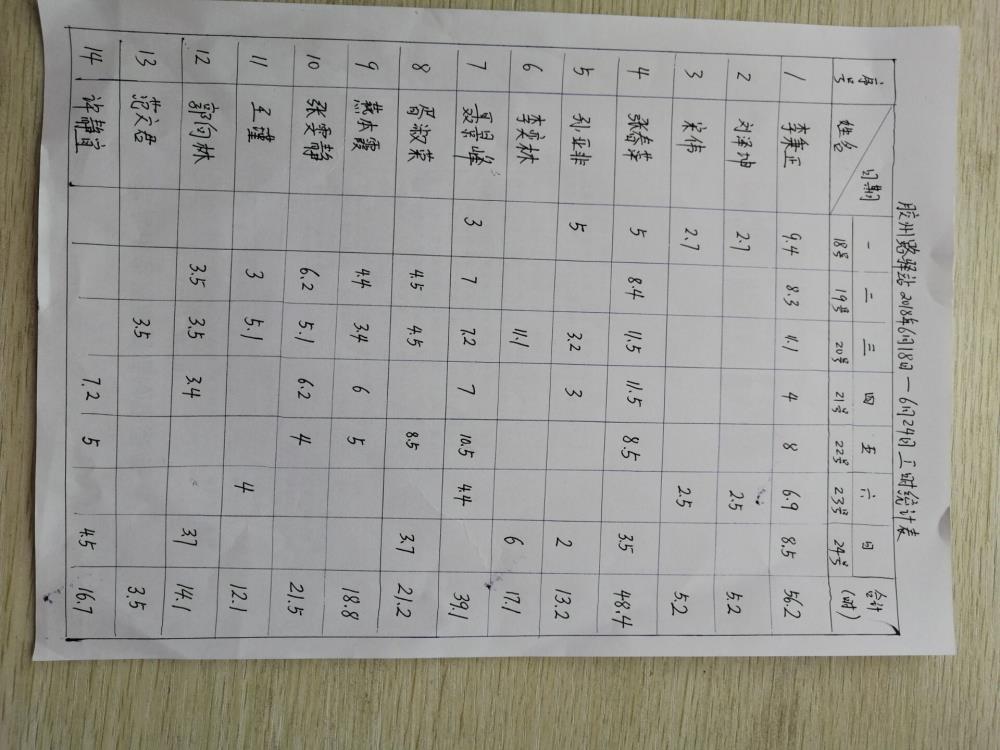 胶州路驿站2018年6月18日—6月24日工时统计表
序号 姓名 日期 一 二 三 四 五 六 日 合计
18号 19号 20号 21号 22号 23号 24号 (时)
1 李秉正 9.4 8.3 11.1 4 8 6.9 8.5 56.2
2 刘泽坤 2.7 2.5 5.2
3 宋伟 2.7 2.5 5.2
4 张春萍 5 8.4 11.5 11.5 8.5 3.5 48.4
5 孙亚非 5 3.2 3 2 13.2
6 李奕林 11.1 6 17.1
7 景峰 3 7 7.2 7 10.5 4.4 39.1
8 胥淑荣 4.5 4.5 8.5 3.7 21.2
9 燕本霞 4.4 3.4 6 5 18.8
10 张雯静 6.2 5.1 6.2 4 21.5
11 王瑾 3 5.1 4 12.1
12 郭向林 3.5 3.5 3.4 3.7 14.1
13 范文君 3.5 3.5
14 许静宜 7.2 5 4.5 16.7